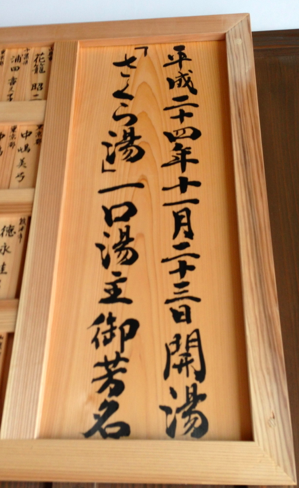 平成二十四年十一月二十三日開湯
「さくら湯」一口湯主御芳名
花籠昭
浦田
中嶋美
徳永